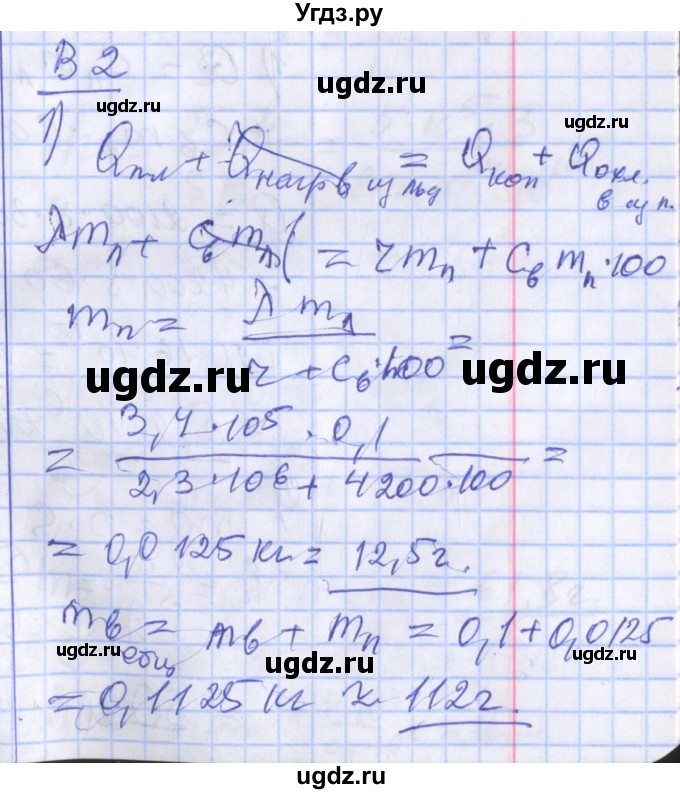 Угдз.ру
В 2
ugdz.ru
ugdz.ru
1) Qпл + Qнагр в из льд = Qкон + Qохл. в из п.
ugdz.ru
λmл + Cвmл( = rmп + Cв mп·100
mп = λ mл / r + Cв·100 =
ugdz.ru
ugdz.ru
= 3,4·105 · 0,1 / 2,3·106 + 4200·100 =
= 0,0125 кг = 12,5 г.
mв общ = mв + mп = 0,1 + 0,0125
ugdz.ru
ugdz.ru
= 0,1125 кг ≈ 112 г.
ugdz.ru